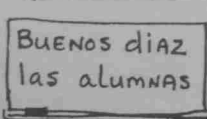 BUENOS diAZ
las alumNAS